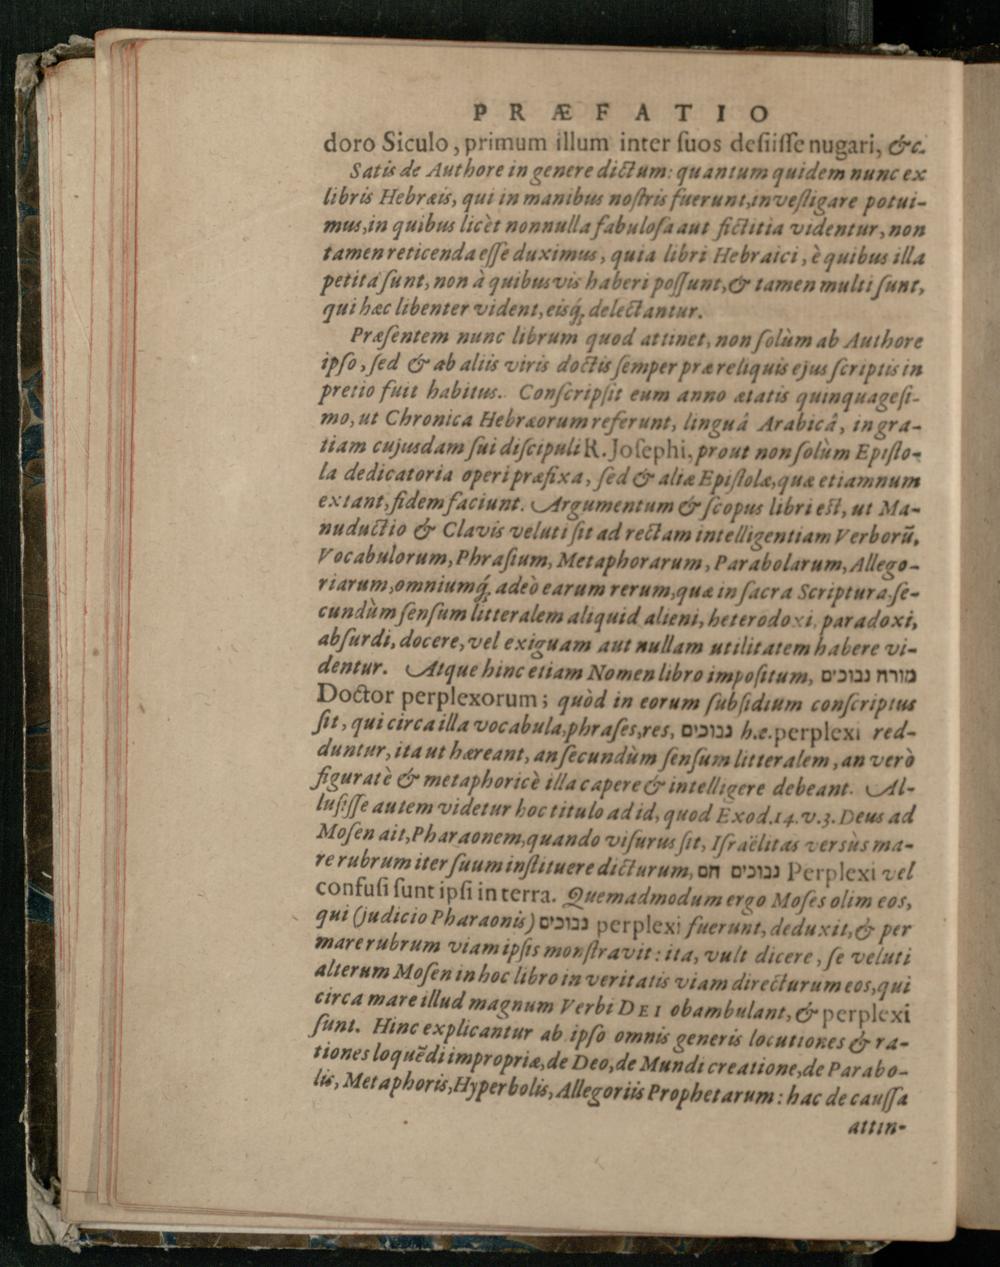 PRÆFATIO
doro Siculo, primum illum inter ſuos deſiiſſe nugari, &c.
Satis de Authore in genere dictum: quantum quidem nunc ex
libris Hebræis, qui in manibus noſtris fuerunt, inveſtigare potui-
mus, in quibus licèt nonnulla fabuloſa aut fictitia videntur, non
tamen reticenda eſſe duximus, quia libri Hebraici, è quibus illa
petita ſunt, non à quibusvis haberi poſſunt, & tamen multi ſunt,
qui hæc libenter vident, eisq́; delectantur.
Præſentem nunc librum quod attinet, non ſolùm ab Authore
ipſo, ſed & ab aliis viris doctis ſemper præ reliquis ejus ſcriptis in
pretio fuit habitus. Conſcripſit eum anno ætatis quinquageſi-
mo, ut Chronica Hebræorum referunt, linguâ Arabicâ, in gra-
tiam cujusdam ſui diſcipuli R. Joſephi, prout non ſolùm Epiſto-
la dedicatoria operi præfixa, ſed & aliæ Epiſtolæ, quæ etiamnum
extant, fidem faciunt. Argumentum & ſcopus libri eſt, ut Ma-
nuductio & Clavis veluti ſit ad rectam intelligentiam Verborũ,
Vocabulorum, Phraſium, Metaphorarum, Parabolarum, Allego-
riarum, omniumq́; adeò earum rerum, quæ in ſacra Scriptura ſe-
cundùm ſenſum litteralem aliquid alieni, heterodoxi, paradoxi,
abſurdi, docere, vel exiguam aut nullam utilitatem habere vi-
dentur. Atque hinc etiam Nomen libro impoſitum, מורה נבוכים
Doctor perplexorum; quòd in eorum ſubſidium conſcriptus
ſit, qui circa illa vocabula, phraſes, res, נבוכים h.e. perplexi red-
duntur, ita ut hæreant, an ſecundùm ſenſum litteralem, an verò
figuratè & metaphoricè illa capere & intelligere debeant. Al-
luſiſſe autem videtur hoc titulo ad id, quod Exod. 14. v. 3. Deus ad
Moſen ait, Pharaonem, quando viſurus ſit, Iſraëlitas versùs ma-
re rubrum iter ſuum inſtituere dicturum, נבוכים הם Perplexi vel
confuſi ſunt ipſi in terra. Quemadmodum ergo Moſes olim eos,
qui (judicio Pharaonis) נבוכים perplexi fuerunt, deduxit, & per
mare rubrum viam ipſis monſtravit: ita, vult dicere, ſe veluti
alterum Moſen in hoc libro in veritatis viam directurum eos, qui
circa mare illud magnum Verbi DEI obambulant, & perplexi
ſunt. Hinc explicantur ab ipſo omnis generis locutiones & ra-
tiones loquẽdi impropriæ, de Deo, de Mundi creatione, de Parabo-
lis, Metaphoris, Hyperbolis, Allegoriis Prophetarum: hac de cauſſa
attin-